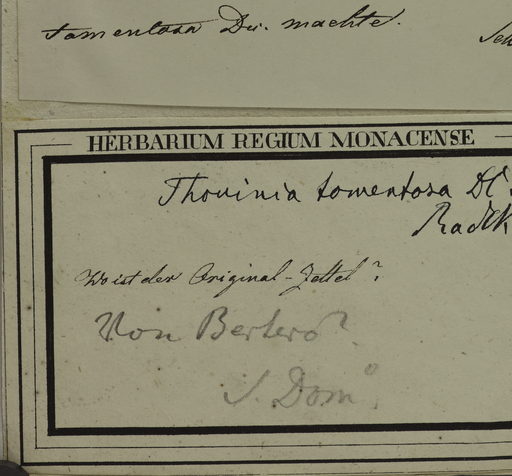 tomentosa Dec. machte.
HERBARIUM REGIUM MONACENSE
Thouinia tomentosa DC.
Radlk
Wo ist der Original-Zettel?
Von Bertero?
S. Domo.